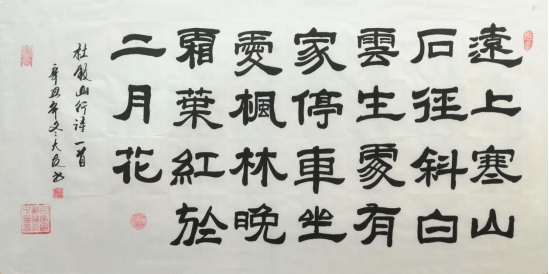 遠上寒山
石徑斜白
雲生處有
家停車坐
愛楓林晚
霜葉紅於
二月花
杜牧山行诗一首
辛丑年冬